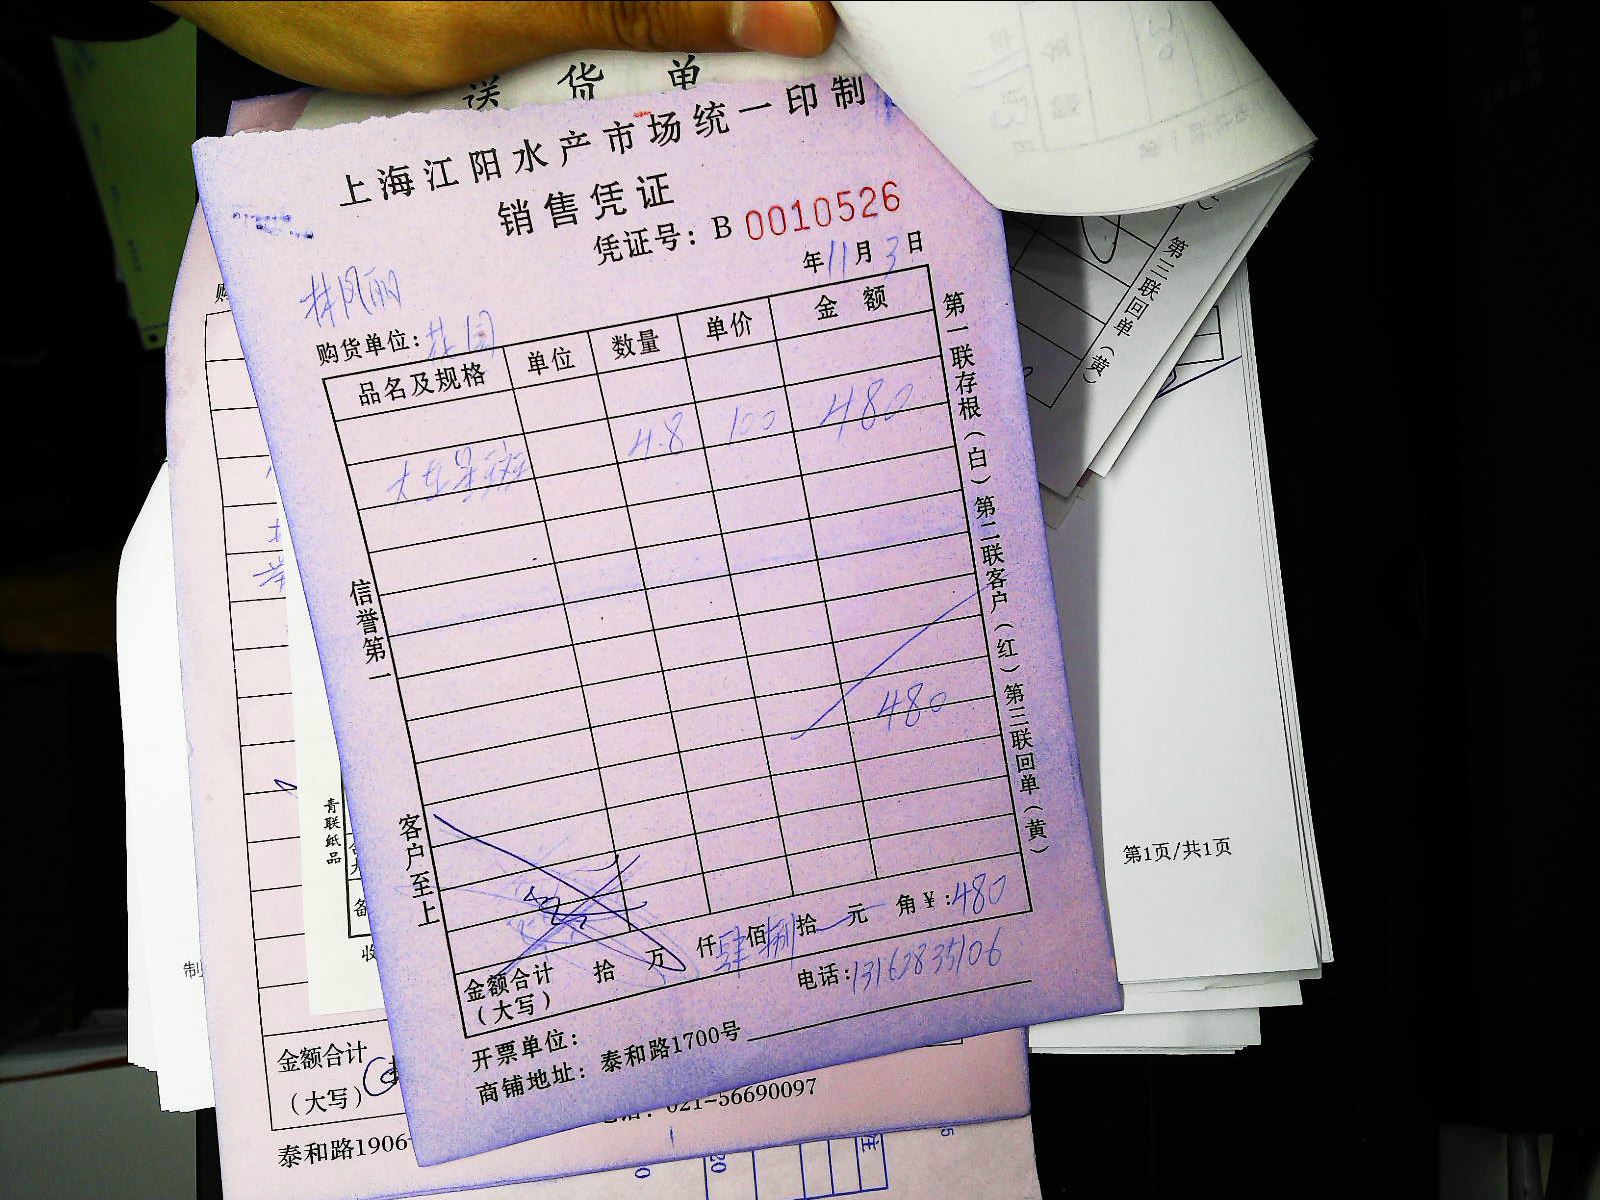 送 货 单
上海江阳水产市场统一印制
销售凭证
凭证号: B 0010526
年11月3日
林凤丽
购货单位:
品名及规格 单位 数量 单价 金 额
大东星斑 4.8 100 480
480
金额合计 (大写) 拾 万 仟肆佰捌拾 元 角¥:480
开票单位: 电话:13162835106
商铺地址: 泰和路1700号
信誉第一 客户至上
第一联存根(白) 第二联客户(红) 第三联回单(黄)
第三联回单(黄)
第1页/共1页
青联纸品
金额合计
(大写)
021-56690097
泰和路1906